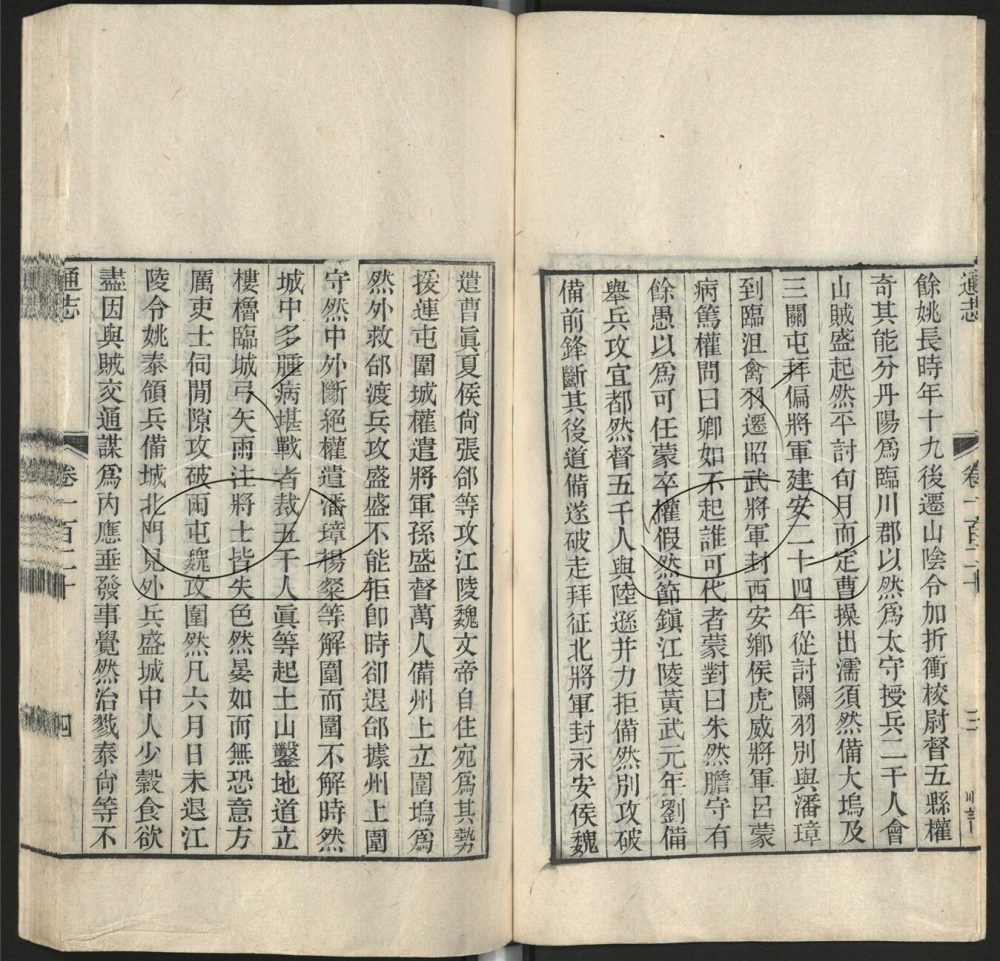 通志
卷一百二十
三
餘姚長時年十九後遷山陰令加折衝校尉督五縣權
奇其能分丹陽爲臨川郡以然爲太守授兵二千人會
山賊盛起然平討旬月而定曹操出濡須然備大塢及
三關屯拜偏將軍建安二十四年從討關羽別與潘璋
到臨沮禽羽遷昭武將軍封西安鄉侯虎威將軍呂蒙
病篤權問曰卿如不起誰可代者蒙對曰朱然膽守有
餘愚以爲可任蒙卒權假然節鎭江陵黃武元年劉備
舉兵攻宜都然督五千人與陸遜并力拒備然別攻破
備前鋒斷其後道備遂破走拜征北將軍封永安侯魏
遣曹眞夏侯尙張郃等攻江陵魏文帝自住宛爲其勢
援連屯圍城權遣將軍孫盛督萬人備州上立圍塢爲
然外救郃渡兵攻盛盛不能拒卽時卻退郃據州上圍
守然中外斷絕權遣潘璋楊粲等解圍而圍不解時然
城中多腫病堪戰者裁五千人眞等起土山鑿地道立
樓櫓臨城弓矢雨注將士皆失色然晏如而無恐意方
厲吏士伺閒隙攻破兩屯魏攻圍然凡六月日未退江
陵令姚泰領兵備城北門見外兵盛城中人少榖食欲
盡因與賊交通謀爲內應垂發事覺然治戮泰尙等不
通志
卷一百二十
四